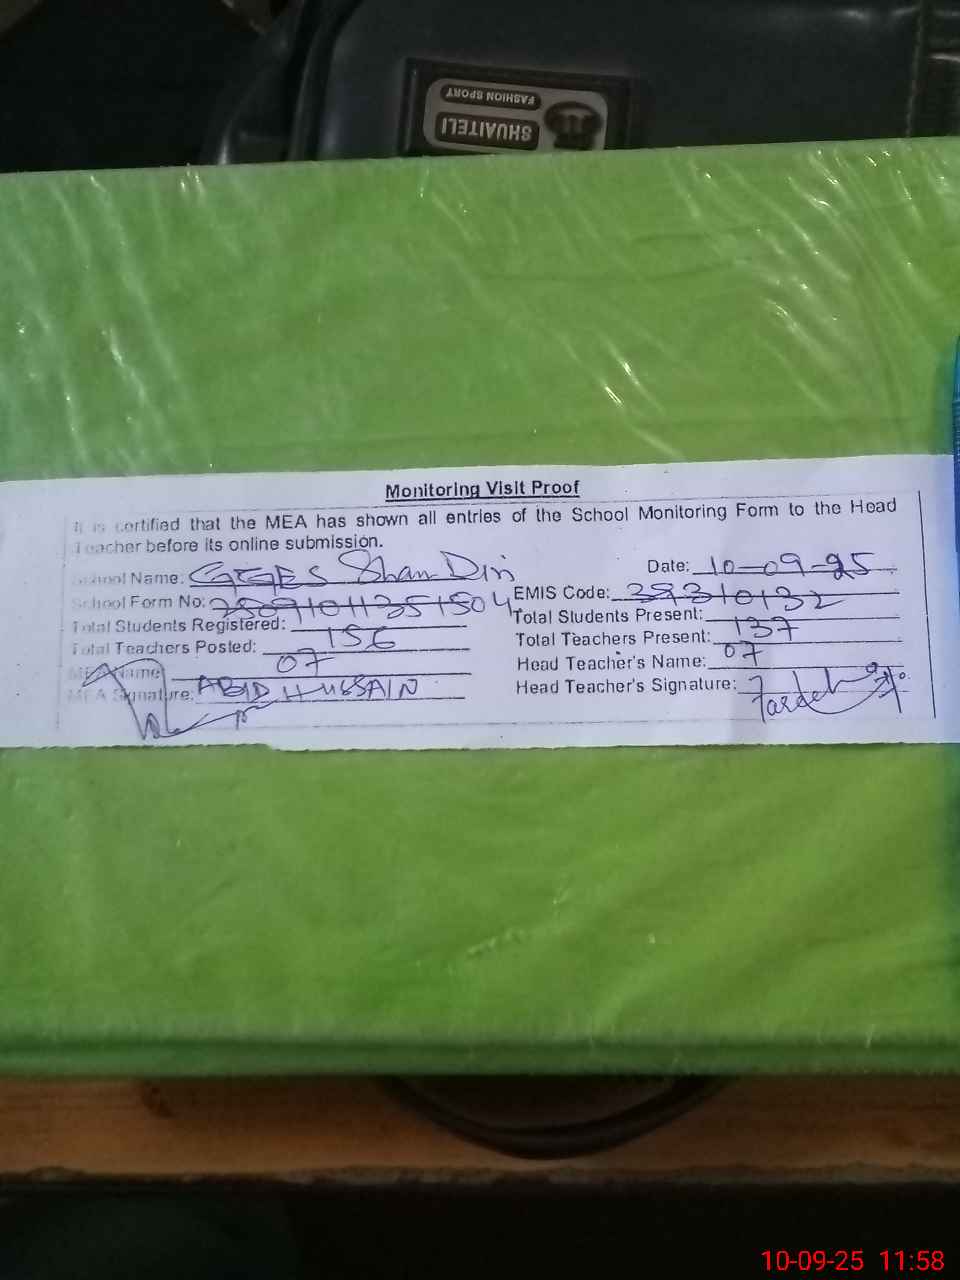 FASHION SPORT
SHUAITELI
Monitoring Visit Proof
It is certified that the MEA has shown all entries of the School Monitoring Form to the Head
Teacher before its online submission.
School Name: GGES Shan Din Date: 10-09-25
School Form No: EMIS Code: 38310132
Total Students Registered: 156 Total Students Present: 137
Total Teachers Posted: 07 Total Teachers Present: 07
MEA Name: ABID HUSSAIN Head Teacher's Name:
MEA Signature: Head Teacher's Signature:
10-09-25 11:58